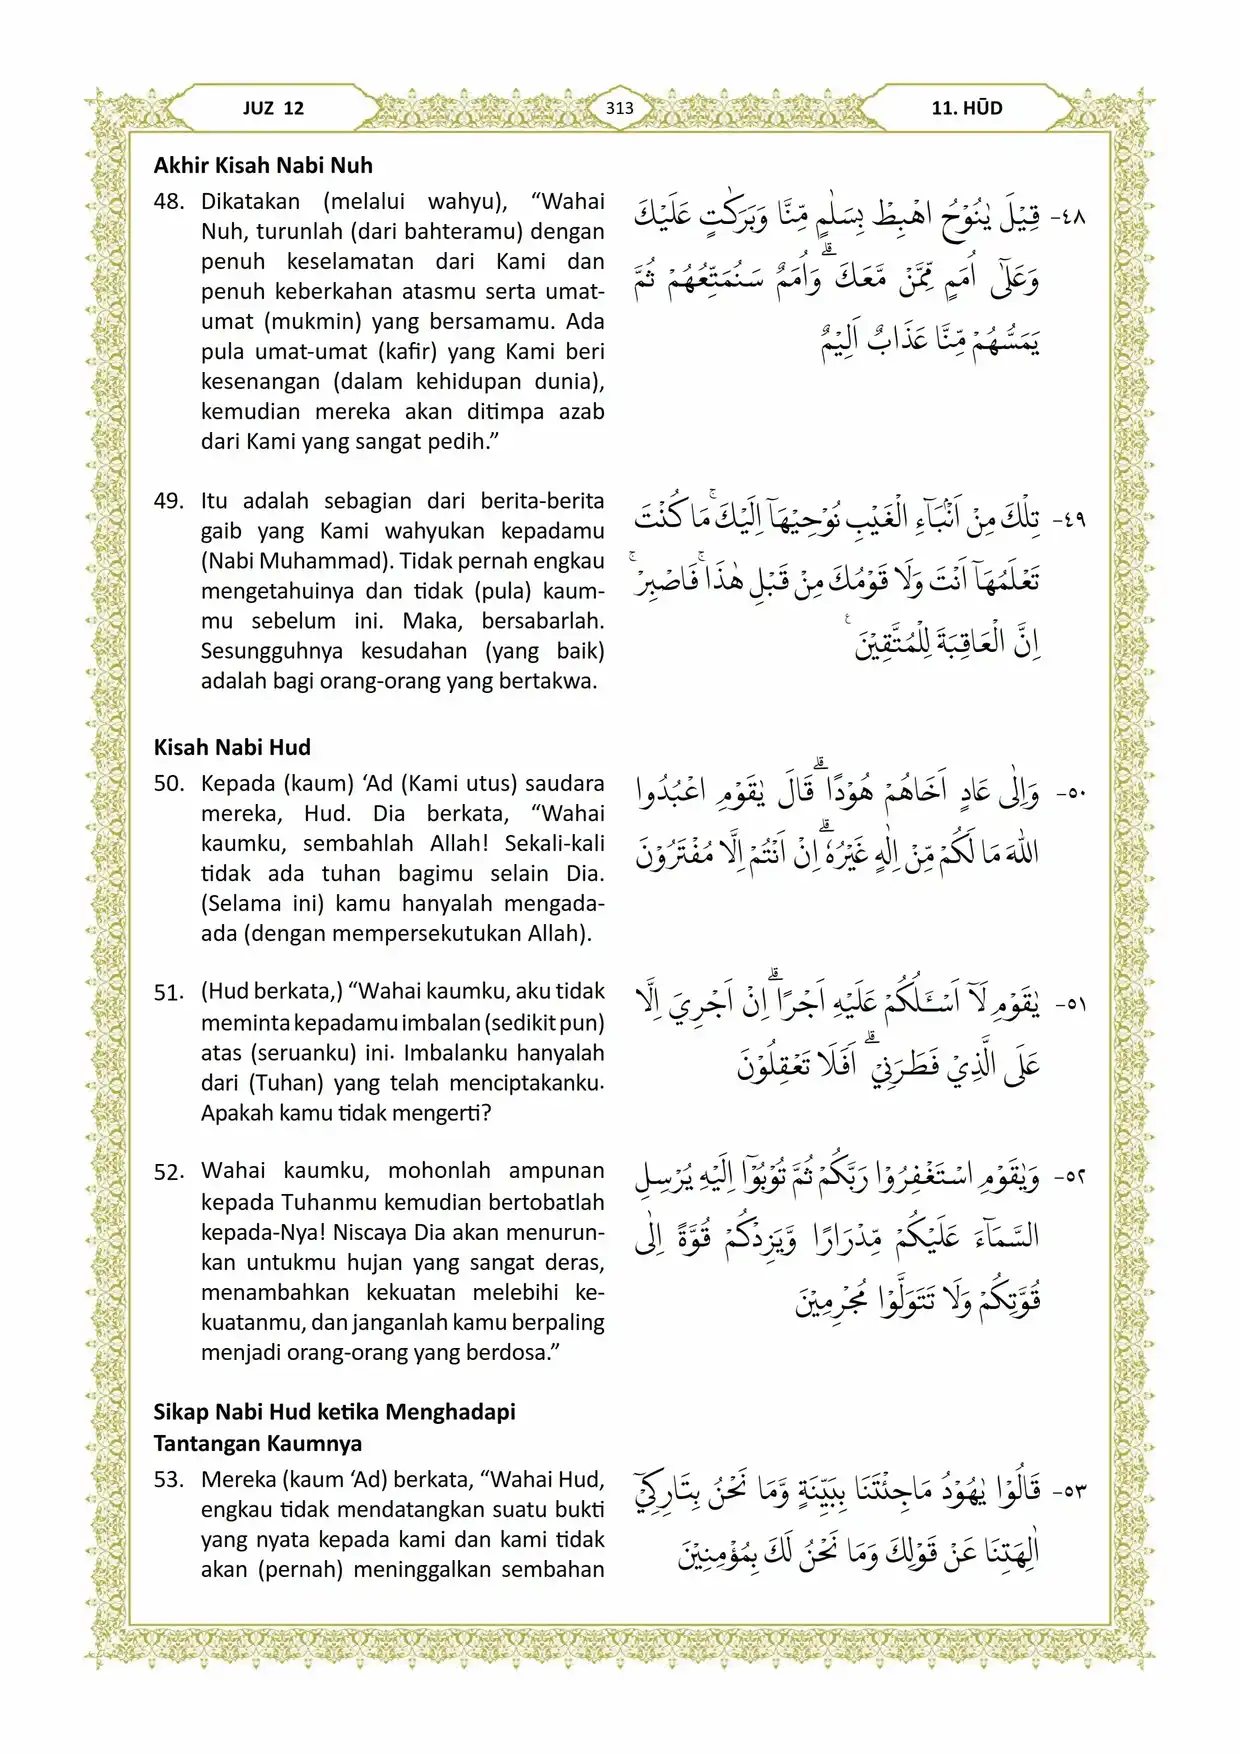 JUZ 12
313
11. HŪD
Akhir Kisah Nabi Nuh
48. Dikatakan (melalui wahyu), “Wahai
Nuh, turunlah (dari bahteramu) dengan
penuh keselamatan dari Kami dan
penuh keberkahan atasmu serta umat-
umat (mukmin) yang bersamamu. Ada
pula umat-umat (kafir) yang Kami beri
kesenangan (dalam kehidupan dunia),
kemudian mereka akan ditimpa azab
dari Kami yang sangat pedih.”
٤٨- قِيْلَ يٰنُوْحُ اهْبِطْ بِسَلٰمٍ مِّنَّا وَبَرَكٰتٍ عَلَيْكَ
وَعَلٰٓى اُمَمٍ مِّمَّنْ مَّعَكَ ۗوَاُمَمٌ سَنُمَتِّعُهُمْ ثُمَّ
يَمَسُّهُمْ مِّنَّا عَذَابٌ اَلِيْمٌ
49. Itu adalah sebagian dari berita-berita
gaib yang Kami wahyukan kepadamu
(Nabi Muhammad). Tidak pernah engkau
mengetahuinya dan tidak (pula) kaum-
mu sebelum ini. Maka, bersabarlah.
Sesungguhnya kesudahan (yang baik)
adalah bagi orang-orang yang bertakwa.
٤٩- تِلْكَ مِنْ اَنْۢبَاۤءِ الْغَيْبِ نُوْحِيْهَآ اِلَيْكَ ۚمَا كُنْتَ
تَعْلَمُهَآ اَنْتَ وَلَا قَوْمُكَ مِنْ قَبْلِ هٰذَاۚ فَاصْبِرْۚ
اِنَّ الْعَاقِبَةَ لِلْمُتَّقِيْنَ ࣖ
Kisah Nabi Hud
50. Kepada (kaum) ‘Ad (Kami utus) saudara
mereka, Hud. Dia berkata, “Wahai
kaumku, sembahlah Allah! Sekali-kali
tidak ada tuhan bagimu selain Dia.
(Selama ini) kamu hanyalah mengada-
ada (dengan mempersekutukan Allah).
٥٠- وَاِلٰى عَادٍ اَخَاهُمْ هُوْدًا ۗقَالَ يٰقَوْمِ اعْبُدُوا
اللّٰهَ مَا لَكُمْ مِّنْ اِلٰهٍ غَيْرُهٗ ۗاِنْ اَنْتُمْ اِلَّا مُفْتَرُوْنَ
51. (Hud berkata,) “Wahai kaumku, aku tidak
meminta kepadamu imbalan (sedikit pun)
atas (seruanku) ini. Imbalanku hanyalah
dari (Tuhan) yang telah menciptakanku.
Apakah kamu tidak mengerti?
٥١- يٰقَوْمِ لَآ اَسْـَٔلُكُمْ عَلَيْهِ اَجْرًا ۗاِنْ اَجْرِيَ اِلَّا
عَلَى الَّذِيْ فَطَرَنِيْ ۗ اَفَلَا تَعْقِلُوْنَ
52. Wahai kaumku, mohonlah ampunan
kepada Tuhanmu kemudian bertobatlah
kepada-Nya! Niscaya Dia akan menurun-
kan untukmu hujan yang sangat deras,
menambahkan kekuatan melebihi ke-
kuatanmu, dan janganlah kamu berpaling
menjadi orang-orang yang berdosa.”
٥٢- وَيٰقَوْمِ اسْتَغْفِرُوْا رَبَّكُمْ ثُمَّ تُوْبُوْٓا اِلَيْهِ يُرْسِلِ
السَّمَاۤءَ عَلَيْكُمْ مِّدْرَارًا وَّيَزِدْكُمْ قُوَّةً اِلٰى
قُوَّتِكُمْ وَلَا تَتَوَلَّوْا مُجْرِمِيْنَ
Sikap Nabi Hud ketika Menghadapi
Tantangan Kaumnya
53. Mereka (kaum ‘Ad) berkata, “Wahai Hud,
engkau tidak mendatangkan suatu bukti
yang nyata kepada kami dan kami tidak
akan (pernah) meninggalkan sembahan
٥٣- قَالُوْا يٰهُوْدُ مَاجِئْتَنَا بِبَيِّنَةٍ وَّمَا نَحْنُ بِتَارِكِيْٓ
اٰلِهَتِنَا عَنْ قَوْلِكَ وَمَا نَحْنُ لَكَ بِمُؤْمِنِيْنَ